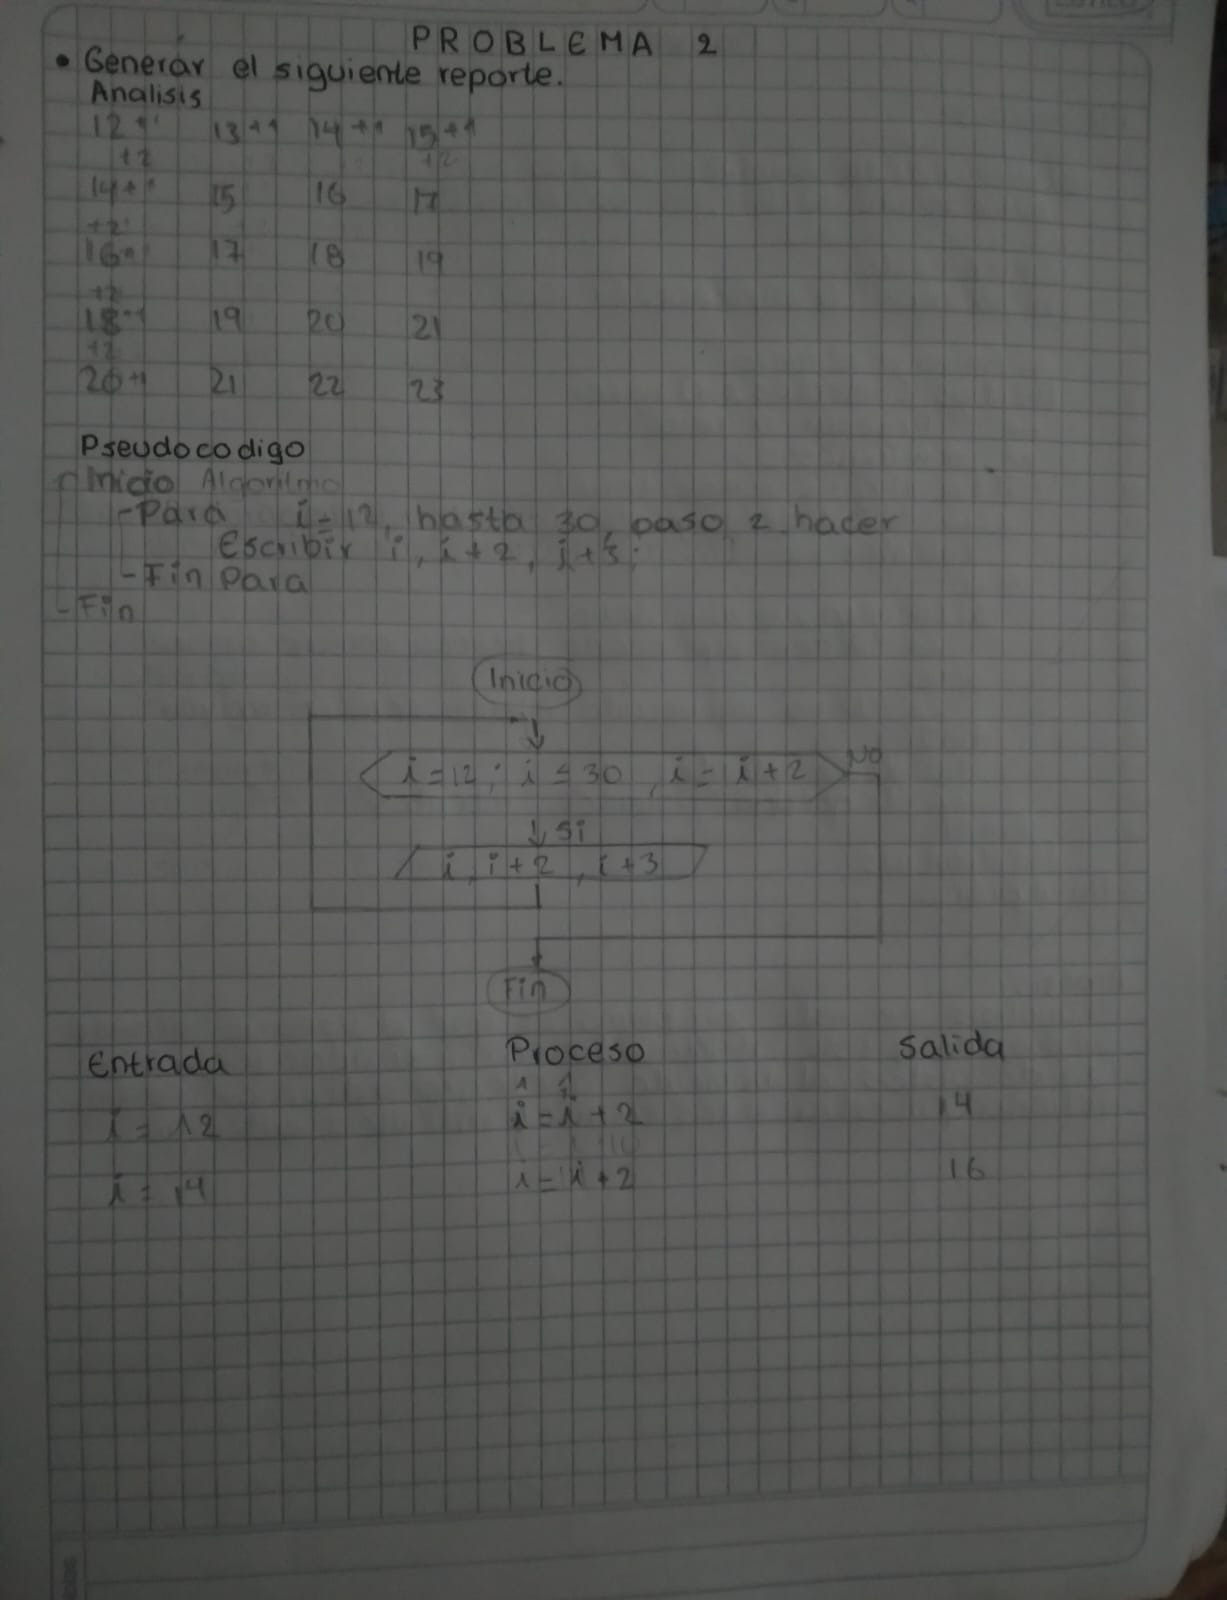 PROBLEMA 2
• Generar el siguiente reporte.
Analisis
12+1 13+1 14+1 15+1
+2 +2
14+1 15 16 17
+2
16+1 17 18 19
+2
18+1 19 20 21
+2
20+1 21 22 23
Pseudocodigo
Inicio Algoritmo
-Para i=12, hasta 30, paso 2 hacer
Escribir i, i+2, i+3;
-Fin Para
-Fin
Inicio
i=12; i≤30, i=i+2 No
Si
i, i+2, i+3
Fin
Entrada Proceso Salida
i=12 i=i+2 14
i=14 i=i+2 16